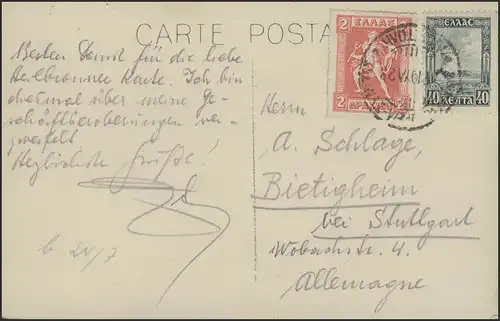 CARTE POSTA
Besten Dank für die liebe
Heilbronner Karte. Ich bin
diesmal über meine Ge-
schäftseroberungen ver-
zweifelt
Herzlichste Grüße!
20/7
2 ΕΛΛΑΣ 2
2
ΕΛΛΑΣ
40 ΛΕΠΤΑ 40
Herrn
A. Schlage,
Bietigheim
bei Stuttgart
Wobachstr. 4.
Allemagne